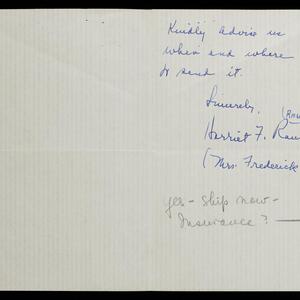 Kindly advise us
when and where
to send it.
Sincerely,
Harriet F.
(Mrs. Frederick
yes - ship now -
Insurance?